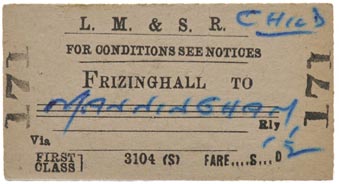 L. M. & S. R. CHILD
FOR CONDITIONS SEE NOTICES
FRIZINGHALL TO
MANNINGHAM
Rly
Via
FIRST CLASS } 3104 (S) FARE....S...D
171
171